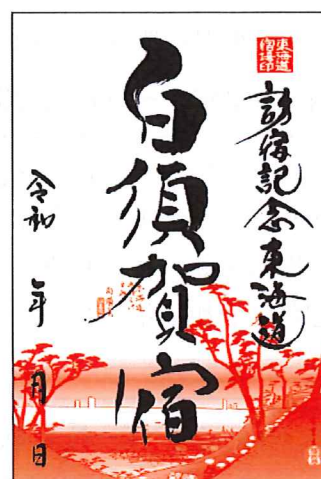 東海道
宿場印
訪宿記念東海道
白須賀宿
令和 年 月 日